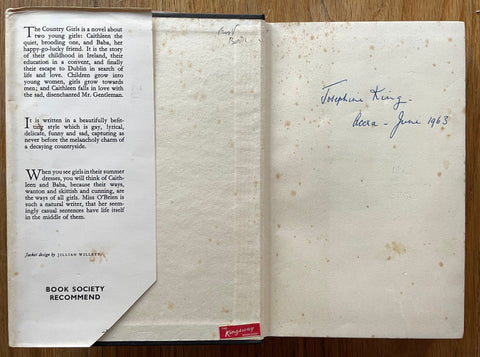 The Country Girls is a novel about
two young girls: Caithleen the
quiet, brooding one, and Baba, her
happy-go-lucky friend. It is the story
of their childhood in Ireland, their
education in a convent, and finally
their escape to Dublin in search of
life and love. Children grow into
young women, girls grow towards
men; and Caitleen falls in love with
the sad, disenchanted Mr. Gentleman.
It is written in a beautifully befit-
ting style which is gay, lyrical,
delicate, funny and sad, capturing as
never before the melancholy charm of
a decaying countryside.
When you see girls in their summer
dresses, you will think of Caith-
leen and Baba, because their ways,
wanton and skittish and cunning, are
the ways of all girls. Miss O'Brien is
such a natural writer, that her seem-
ingly casual sentences have life itself
in the middle of them.
Jacket design by JILLIAN WILLETT
BOOK SOCIETY
RECOMMEND
Kingsway
Josephine King.
Accra - June 1963